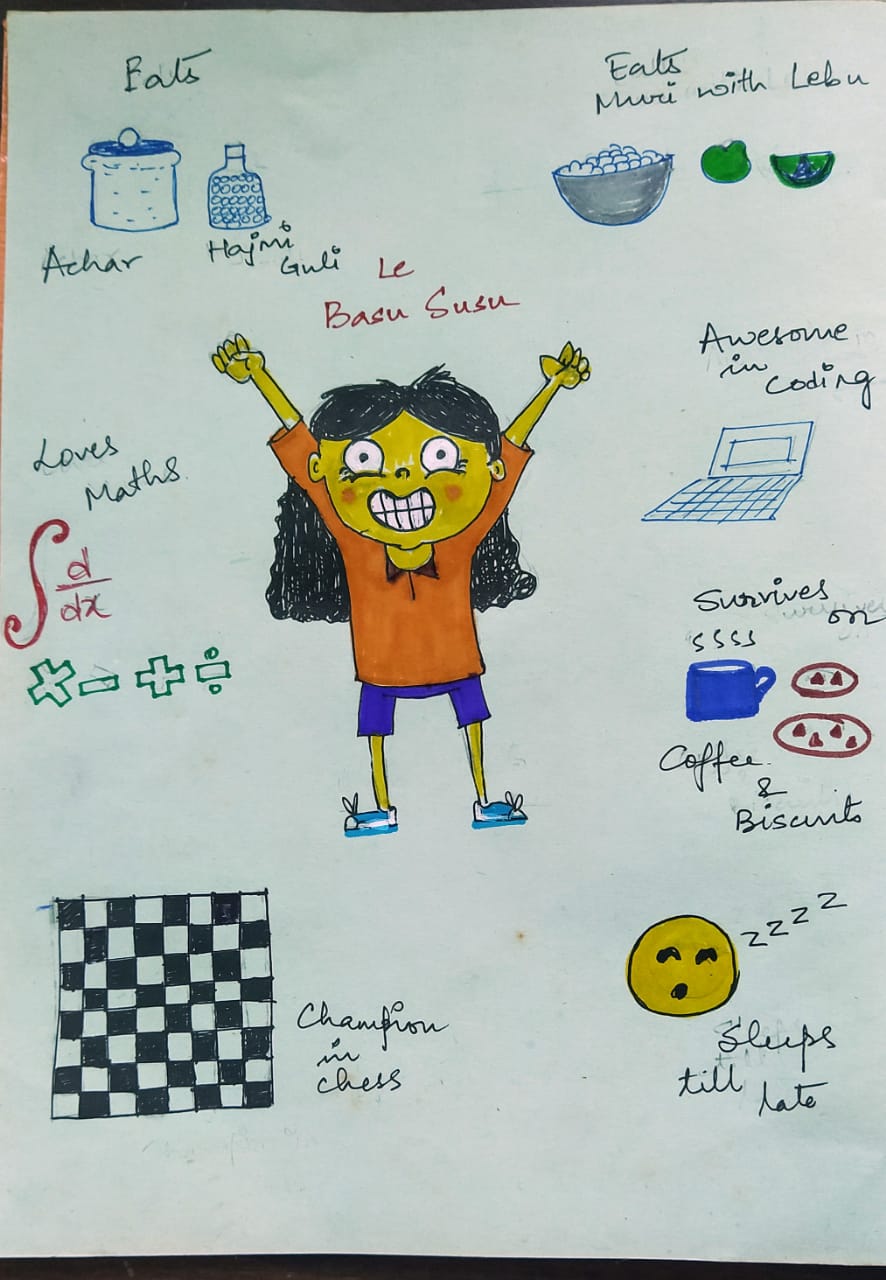 Eats
Achar
Hajmi
Guli
Eats
Muri with Lebu
Le
Basu Susu
Awesome
in
Coding
Loves
Maths
∫ d/dx
× − + ÷
Survives
on
SSSS
Coffee
&
Biscuits
Champion
in
chess
zzzz
Sleeps
till
late